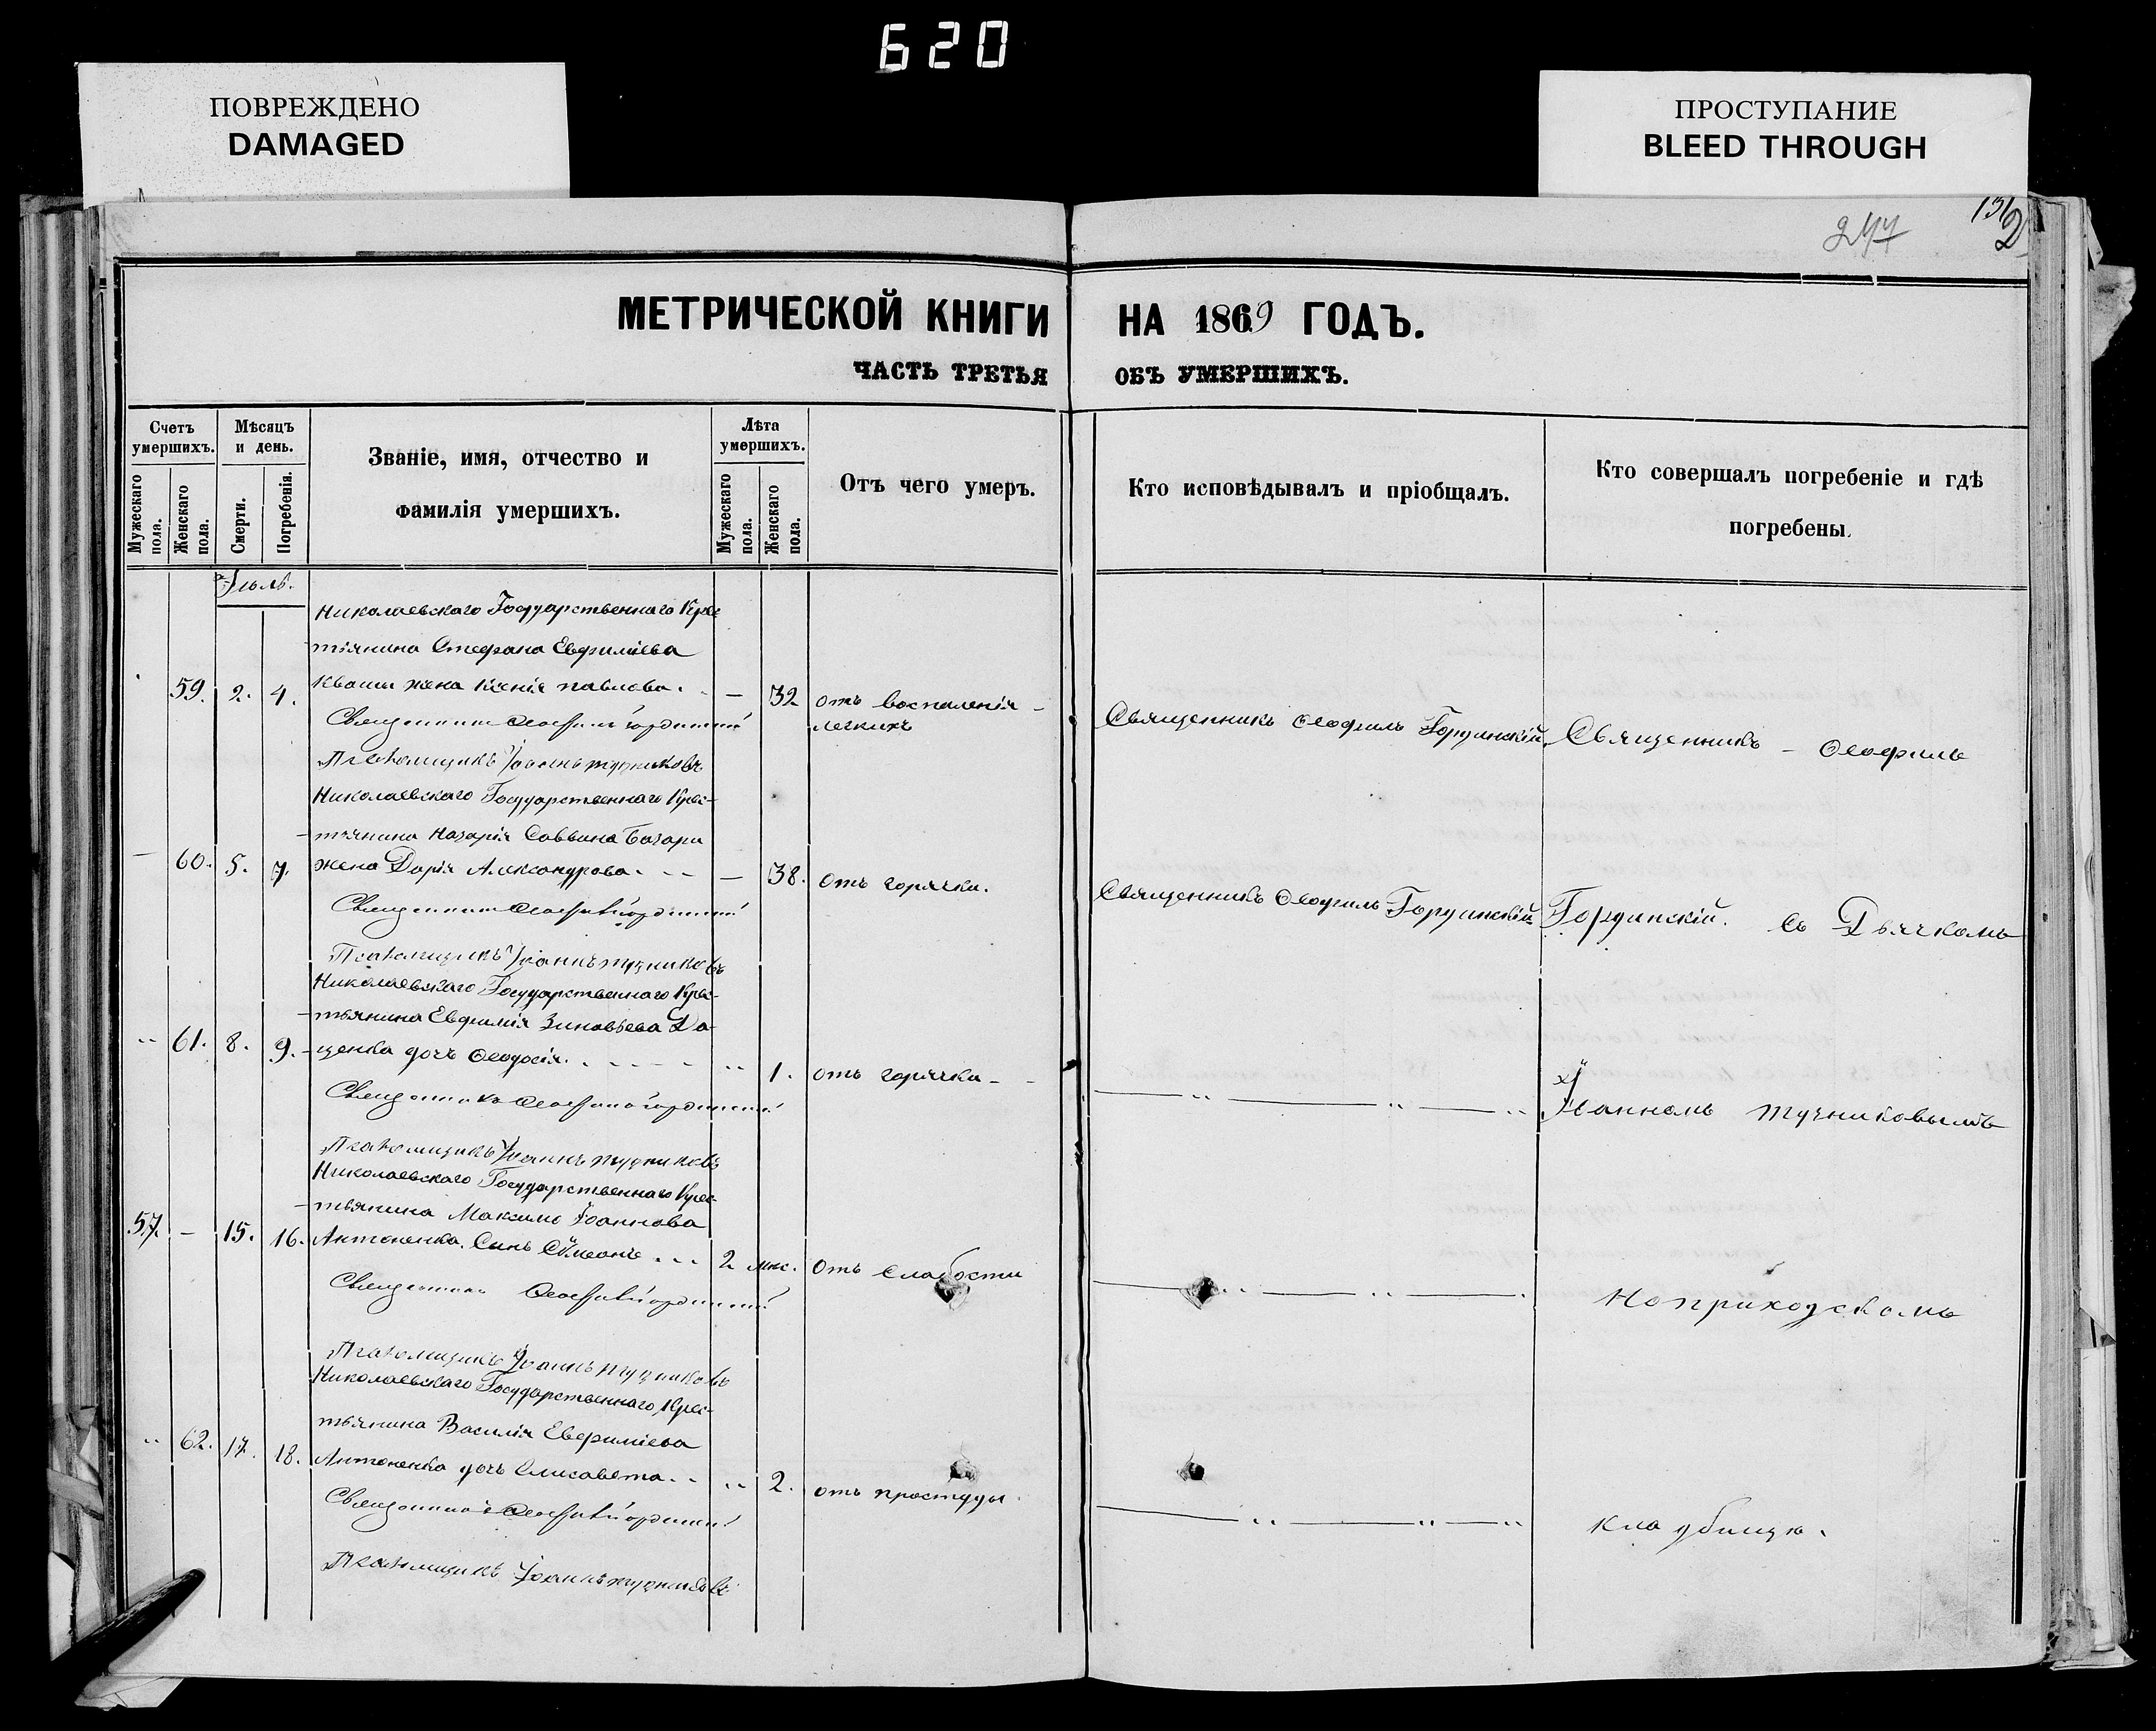 620
ПОВРЕЖДЕНО
DAMAGED
ПРОСТУПАНИЕ
BLEED THROUGH
277
131
2
МЕТРИЧЕСКОЙ КНИГИ НА 1869 ГОДЪ.
ЧАСТЬ ТРЕТЬЯ ОБЪ УМЕРШИХЪ.
Счетъ умершихъ.
Мужескаго пола.
Женскаго пола.
Мѣсяцъ и день.
Смерти.
Погребенія.
Званіе, имя, отчество и
фамилія умершихъ.
Лѣта умершихъ.
Мужескаго пола.
Женскаго пола.
Отъ чего умеръ.
Кто исповѣдывалъ и пріобщалъ.
Кто совершалъ погребеніе и гдѣ
погребены.
Іюль.
Николаевскаго Государственнаго Крес
тьянина Стефана Евфиміева
59. 2. 4. Кваши жена Ксенія Павлова. — 32 отъ воспаленія
легкихъ
Священникъ Ѳеофилъ Гординскій
Священникъ Ѳеофилъ Гординскій. Священникъ – Ѳеофилъ
Псаломщикъ Іоаннъ Тучниковъ
Николаевскаго Государственнаго Крес-
тьянина Назарія Саввина
— 60. 5. 7. жена Дарія Александрова. — 38. отъ горячки.
Священникъ Ѳеофилъ Гординскій
Священникъ Ѳеофилъ Гординскій Гординскій. съ Дьячкомъ
Псаломщикъ Іоаннъ Тучниковъ
Николаевскаго Государственнаго Крес-
тьянина Евфимія Зиновьева Да-
61. 8. 9. ценка дочь Ѳеодосія. 1. отъ горячки
Священникъ Ѳеофилъ Гординскій
Іоанномъ Тучниковымъ
Псаломщикъ Іоаннъ Тучниковъ
Николаевскаго Государственнаго Крес-
тьянина Максима Іоаннова
57. — 15. 16. Антоненка. Сынъ Сѵмеонъ 2 мѣс. отъ слабости
Священникъ Ѳеофилъ Гординскій
На приходскомъ
Псаломщикъ Іоаннъ Тучниковъ
Николаевскаго Государственнаго Крес-
тьянина Василія Евфиміева
62. 17. 18. Антоненка дочь Елисавета. 2. отъ простуды.
Священникъ Ѳеофилъ Гординскій
кладбищѣ.
Псаломщикъ Іоаннъ Тучниковъ